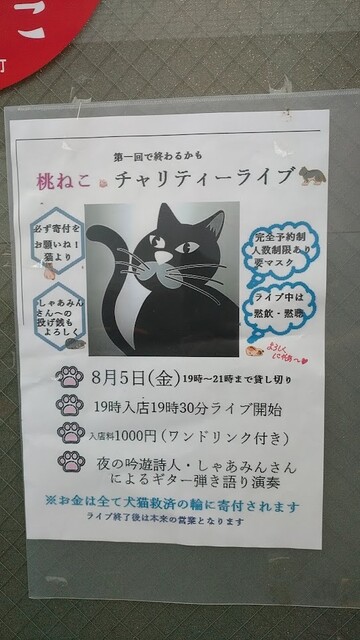 こ
町
第一回で終わるかも
桃ねこ チャリティーライブ
必ず寄付を
お願いね！
猫より
完全予約制
人数制限あり
要マスク
しゃあみん
さんへの
投げ銭も
よろしく
ライブ中は
黙飲・黙聴
よろしく
8月5日(金) 19時〜21時まで貸し切り
19時入店19時30分ライブ開始
入店料1000円（ワンドリンク付き）
夜の吟遊詩人・しゃあみんさん
によるギター弾き語り演奏
※お金は全て犬猫救済の輪に寄付されます
ライブ終了後は本来の営業となります